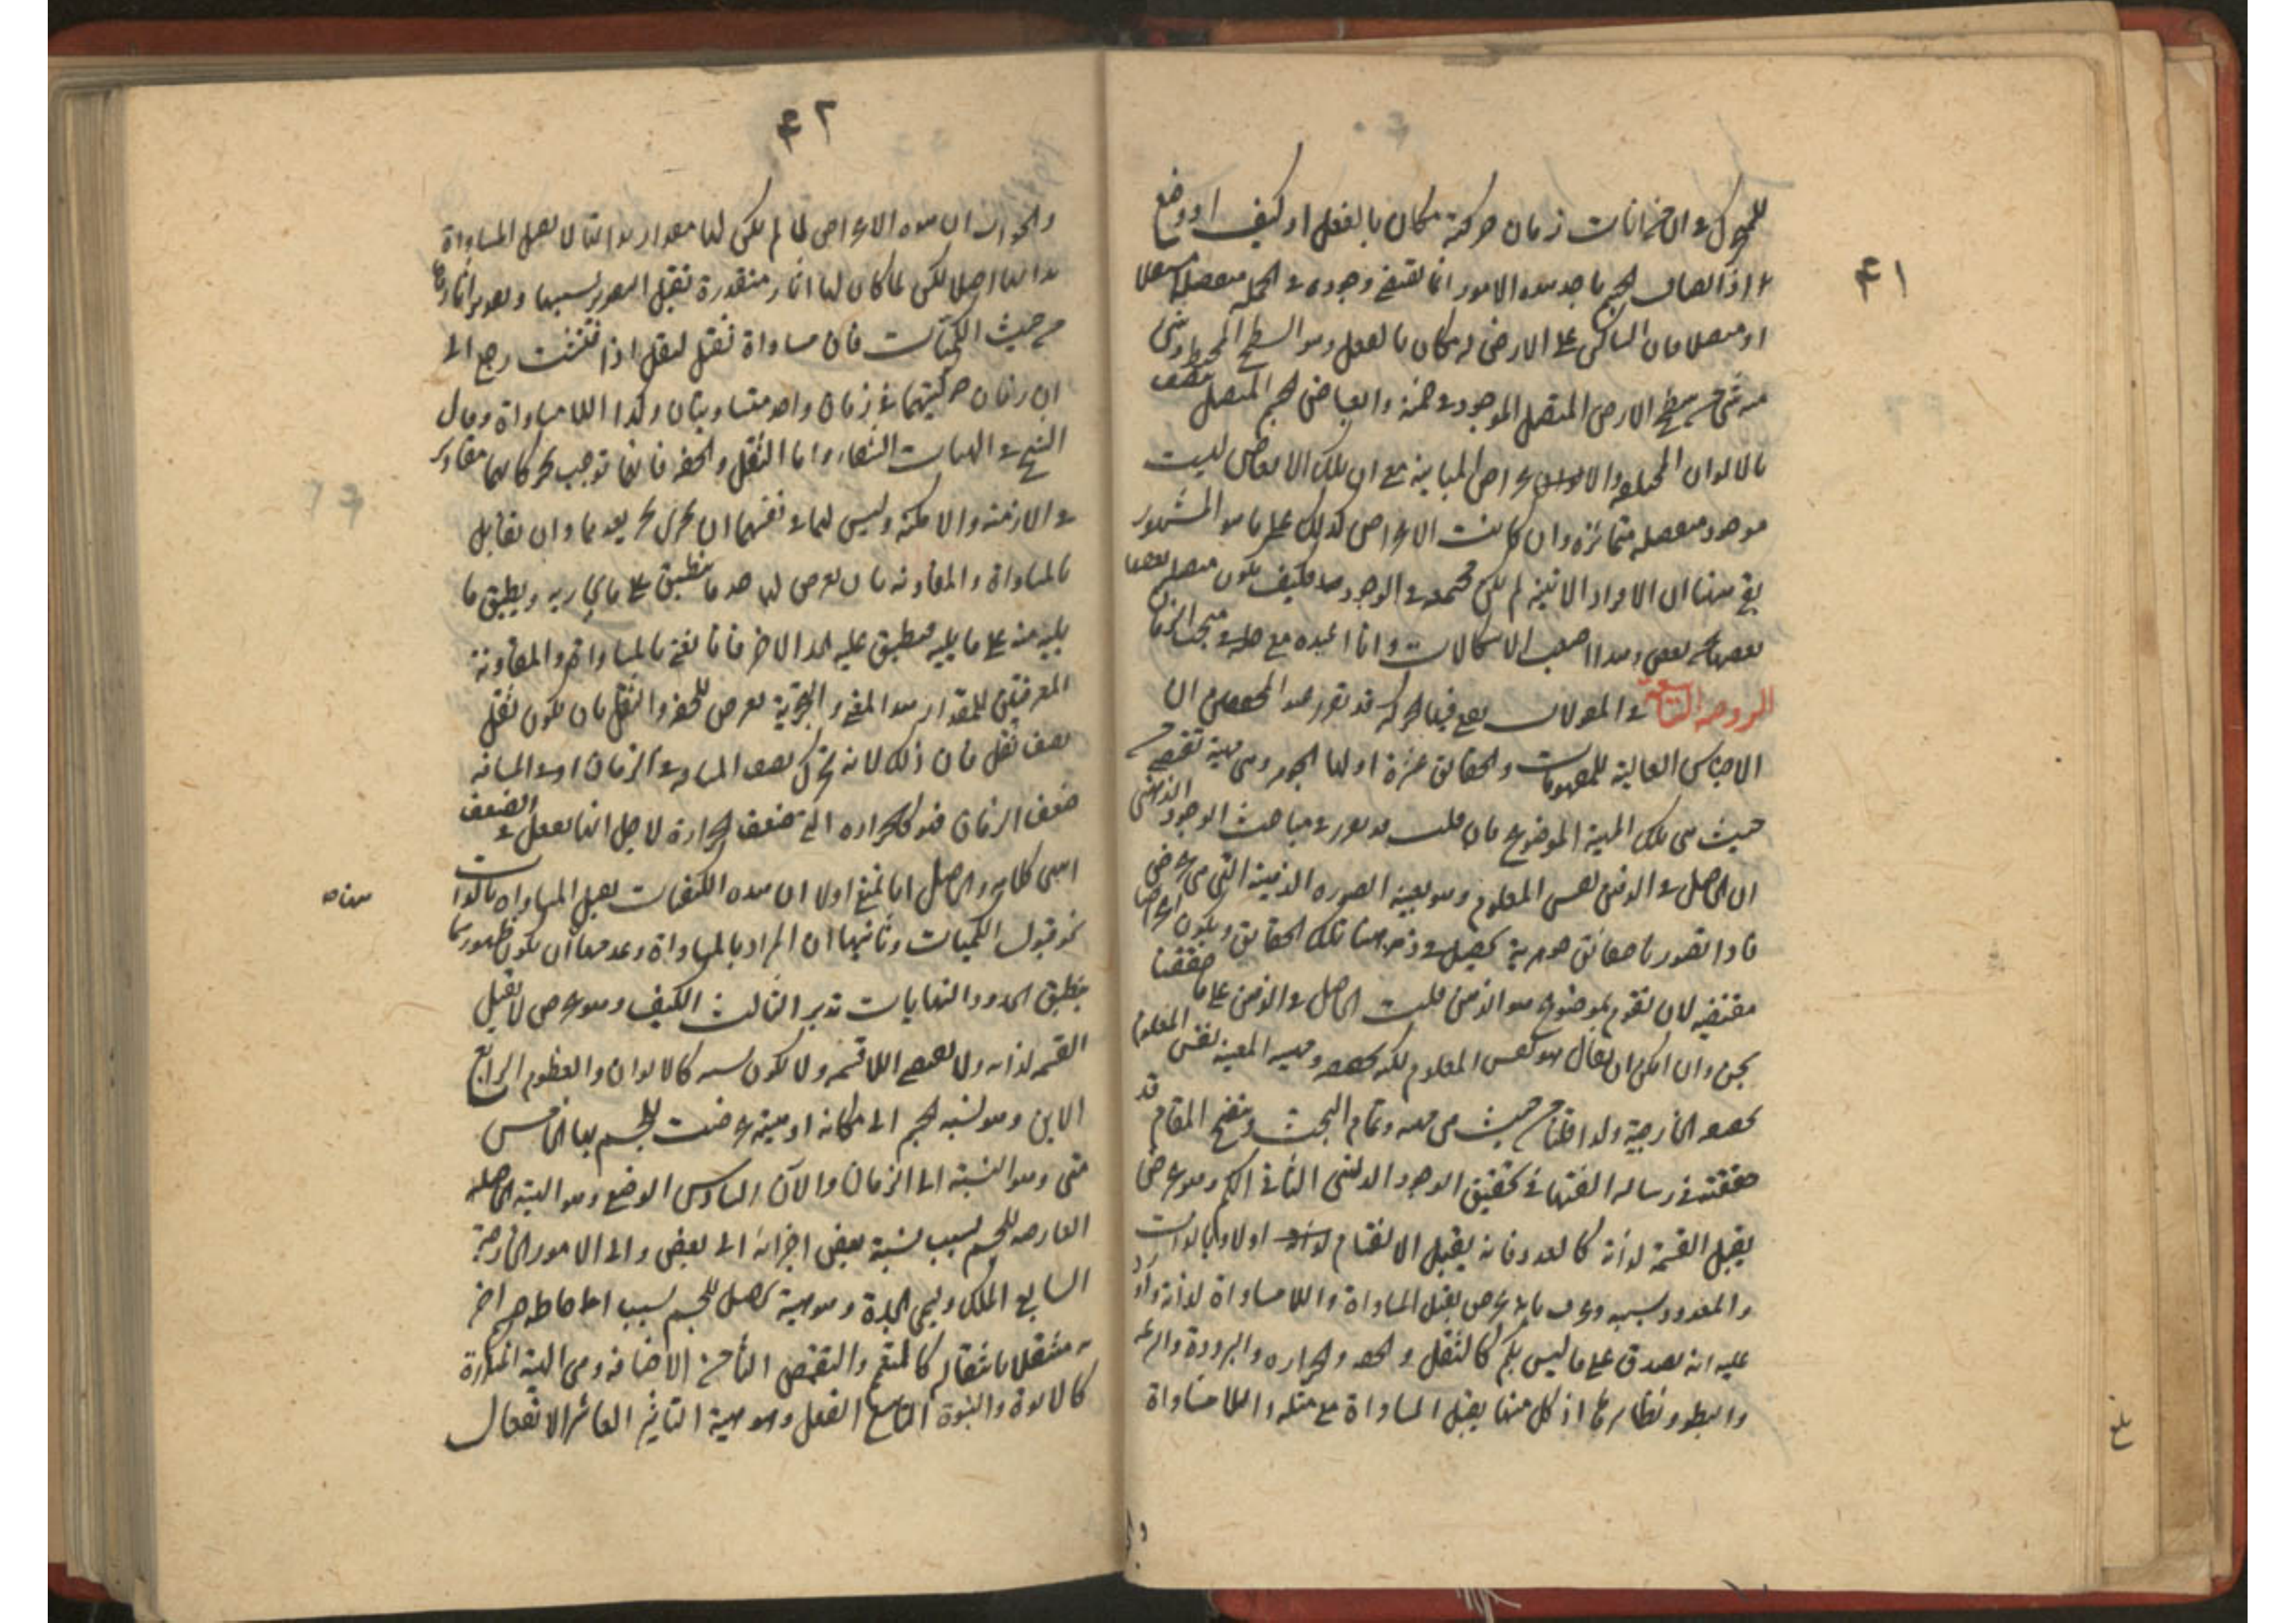 ٤١
للمتحرك في ان حركته زمان حركة مكان بالفعل او كيف او وضع
اذ اتصاف الجسم باحد هذه الامور انما يقتضي وجوده في الجملة منفصلا
او متصلا فان الساكن على الارض له مكان بالفعل وهو السطح المحيط وشئ
من سطح الارض المتصل الموجود في ضمنه والبياض لجسم المتصل
كالالوان المختلفة والاعراض المباينة مع ان تلك الابعاض ليست
موجودة منفصلة متمايزة وان كانت الاعراض كذلك على ما هو المشهور
بقي هنا ان الافراد الآنية لم تكن مجتمعة في الوجود فكيف يكون متصلا بعضها
بعض وهذا اصعب الاشكالات وانا اعيده مع حله في مبحث الزمان
الروضة التاسعة في المقولات يقع فيها الحركة قد تقرر عند المحصلين ان
الاجناس العالية للمفهومات والحقائق عشرة اولها الجوهر وهي مهية تقتضي
حيث هي تلك المهية الموضوع فان قلت قد تقرر في مباحث الوجود الذهني
ان الحاصل في الذهن نفس المعلوم وهو بعينه الصورة الذهنية التي هي عرض
فاذا تصورنا حقائق جوهرية يحصل في ذهننا تلك الحقائق ويكون اعراضا
مقتضية لان تقوم بموضوع هو الذهن قلت الحاصل في الذهن على ما حققنا
وان امكن ان يقال هو نفس المعلوم لكنه المعينة نفس المعلوم
الخارجية ولذا قلنا من حيث هي وتمام البحث وتنقيح المقام قد
حققته في رسالة الفتها في تحقيق الوجود الذهني الثاني الكم وهو عرض
يقبل القسمة لذاته كالعدد فانه يقبل الانقسام اولا وبالذات
والمعدود بسببه وعرف بانه عرض يقبل المساواة واللا مساواة لذاته واورد
عليه انه يصدق على ما ليس بكم كالثقل والخفة والحرارة والبرودة والسرعة
والبطؤ ونظايرها اذ كل منها يقبل المساواة مع مثله واللا مساواة
٤٢
والجواب ان هذه الاعراض لما لم يكن لها مقدار بذاتها لا يقبل المساواة
بذاتها اصلا لكن لما كان لها آثار متقدرة تقبل التقدير بسببها
من حيث الكميات فان مساواة ثقل لثقل اذا فتشت رجع الى
ان زمان حركتيهما في زمان واحد متساويتان وكذا اللا مساواة وقال
الشيخ في الهيات الشفاء واما الثقل والخفة فانها توجب بحركاتها مقادير
في الازمنة والامكنة وليس لها في نفسها ان يجزى بجزء يعدها وان يقابل
بالمساواة والمفاوتة بان يفرض لها حد منطبق على ويطبق ما
يليه منه على ما يليه فينطبق عليه الحد الاخر فانا نعني بالمساواة والمفاوتة
المعرفتين للمقدار هذا المعنى والتجزية يعرض للخفة والثقل بان يكون ثقل
نصف ثقل فان ذلك لانه تحرك نصف المسافة في الزمان او في المسافة
ضعف الزمان فهو كالحرارة التي تضعف الحرارة لاجل انها يفعل في الضعف
انتهى كلامه والحاصل انا نمنع اولا ان هذه الكيفيات يقبل المساواة بالذات
نحو قبول الكميات وثانيها ان المراد بالمساواة وعدمها ان يكون ظهورهما
بتطبيق الحدود والنهايات تدبر الثالث الكيف وهو عرض لا يقبل
القسمة لذاته ولا يقتضي اللا قسمة ولا يكون نسبة كالالوان والطعوم الرابع
الاين وهو نسبة الجسم الى مكانه او هيئة عرضت للجسم بها الخامس
متى وهو النسبة الى الزمان والآن السادس الوضع وهو الهيئة الحاصلة
العارضة للجسم بسبب نسبة بعض اجزائه الى بعض والى الامور الخارجة
السابع الملك ويسمى الجدة وهو هيئة يحصل للجسم بسبب احاطة جسم اخر
به منتقلا بانتقاله كالتعمم والتقمص الثامن الاضافة وهي الهيئة المتكررة
كالابوة والبنوة التاسع الفعل وهو هيئة التاثير العاشر الانفعال